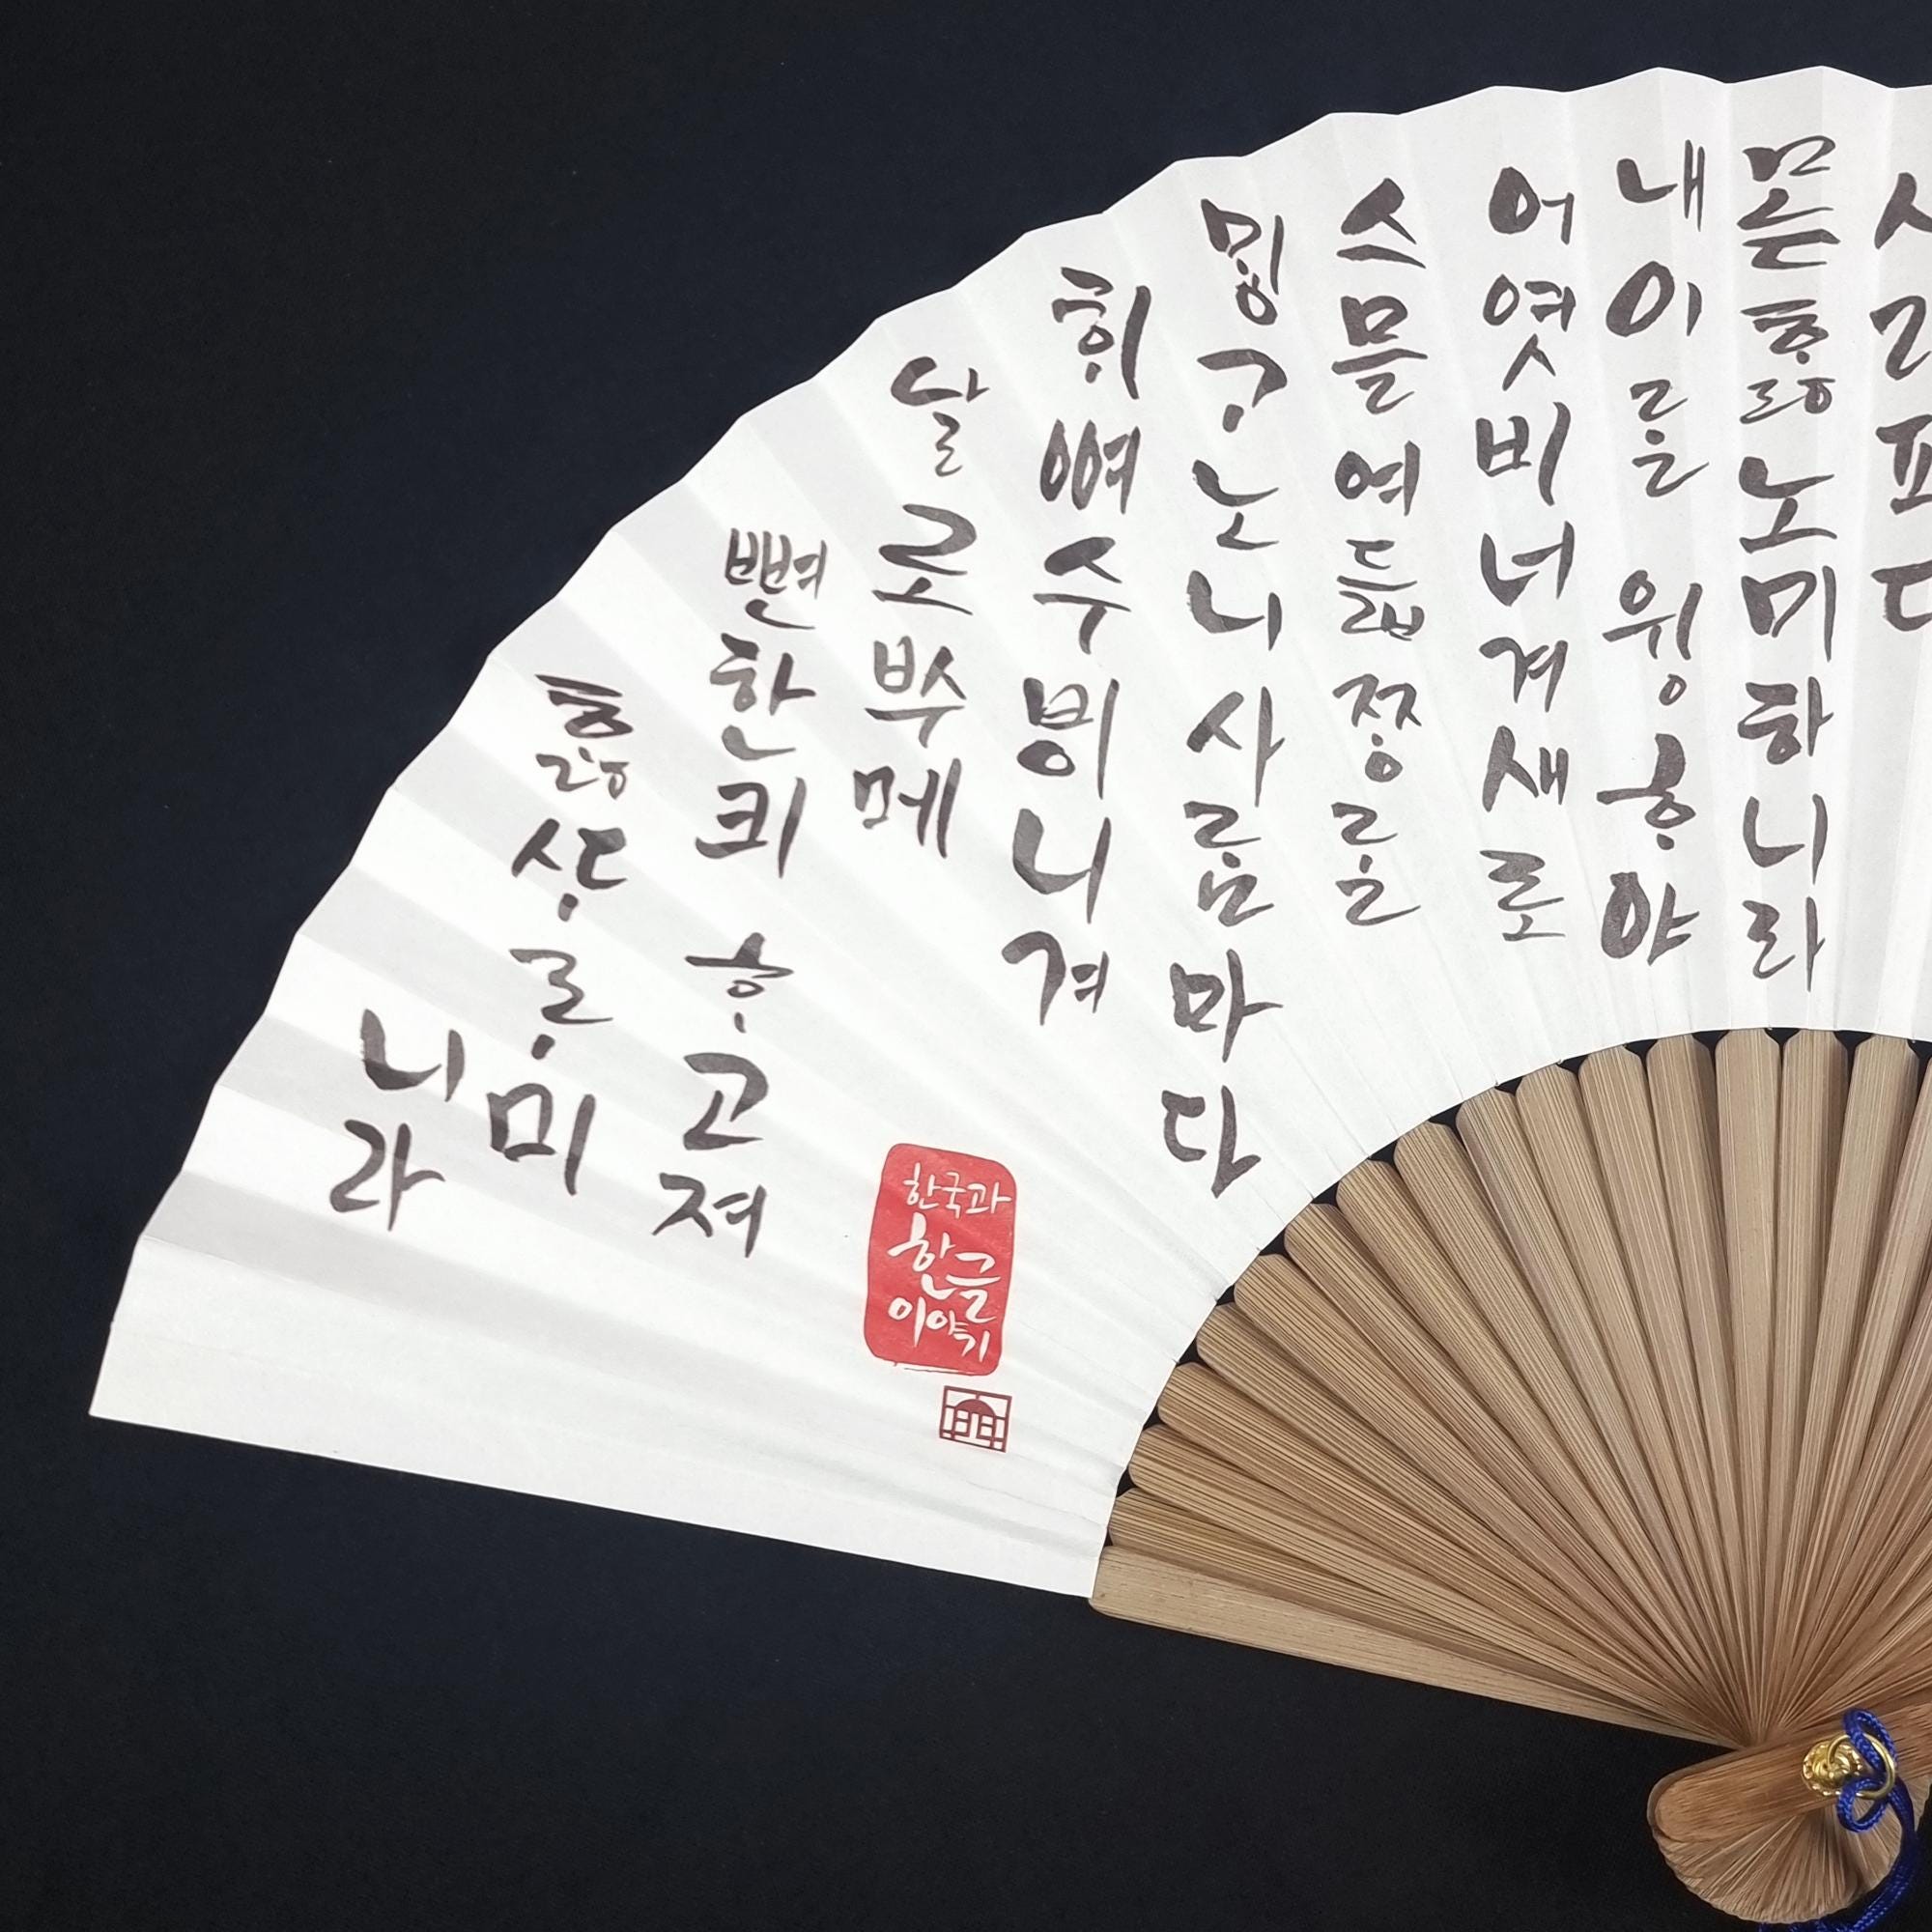 몯ᄒᆞᇙ노미하니라
내이ᄅᆞᆯ 윙ᄒᆞ야
어엿비너겨새로
스믈여듧ᄍᆞᆼᄅᆞᆯ
ᄆᆡᇰᄀᆞ노니사ᄅᆞᆷ마다
ᄒᆡᅇᅧ수ᄫᅵ니겨
날로ᄡᅮ메
뼌한킈 ᄒᆞ고져
ᄒᆞᇙᄯᆞᄅᆞ미
니라
한국과
한글
이야기